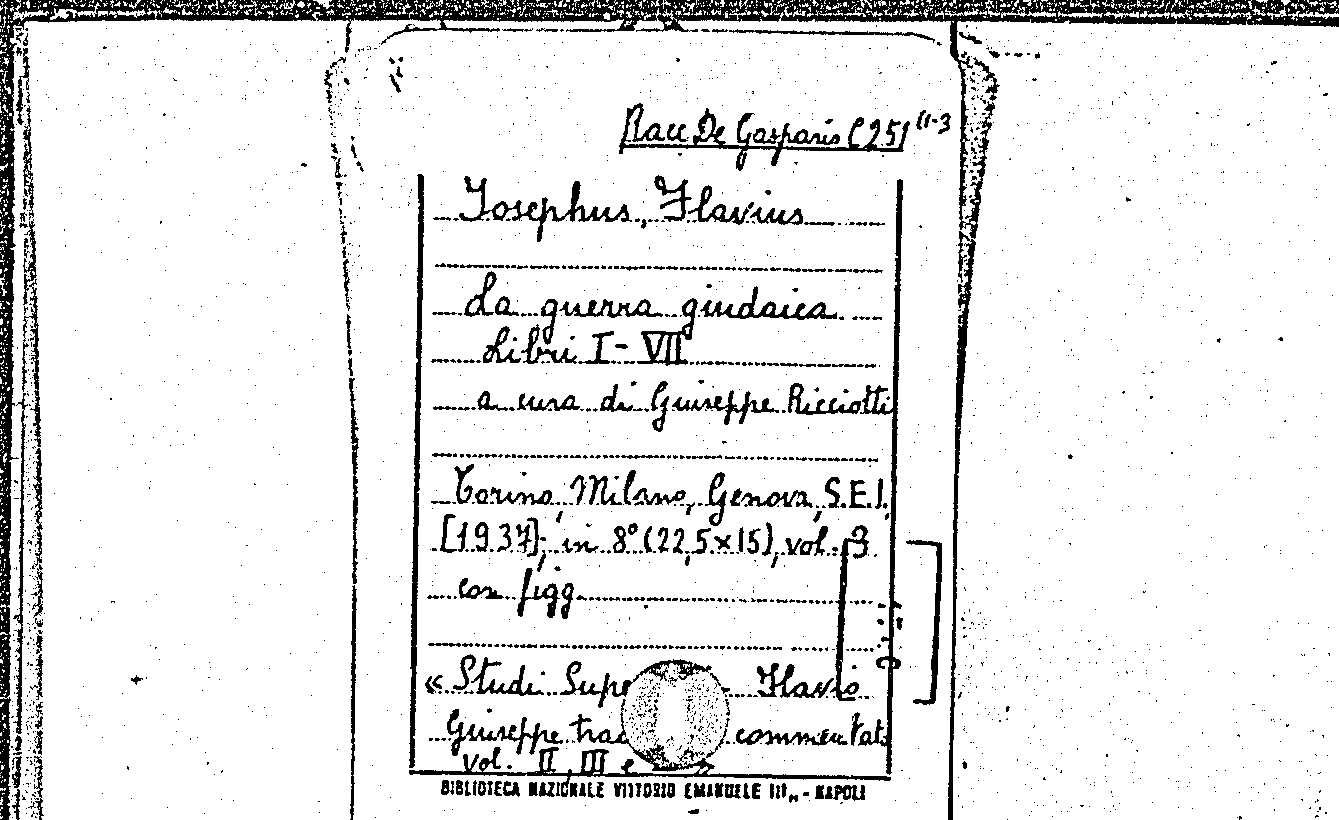 Racc. De Gasparis C 251 (1-3
Josephus, Flavius
La guerra giudaica
Libri I - VII
a cura di Giuseppe Ricciotti
Torino, Milano, Genova, S.E.I.,
[1937]; in 8° (22,5×15), vol. 3
con figg.
« Studi Flavio
Giuseppe commentato
vol. II, III e »
BIBLIOTECA NAZIONALE VITTORIO EMANUELE III„ - NAPOLI